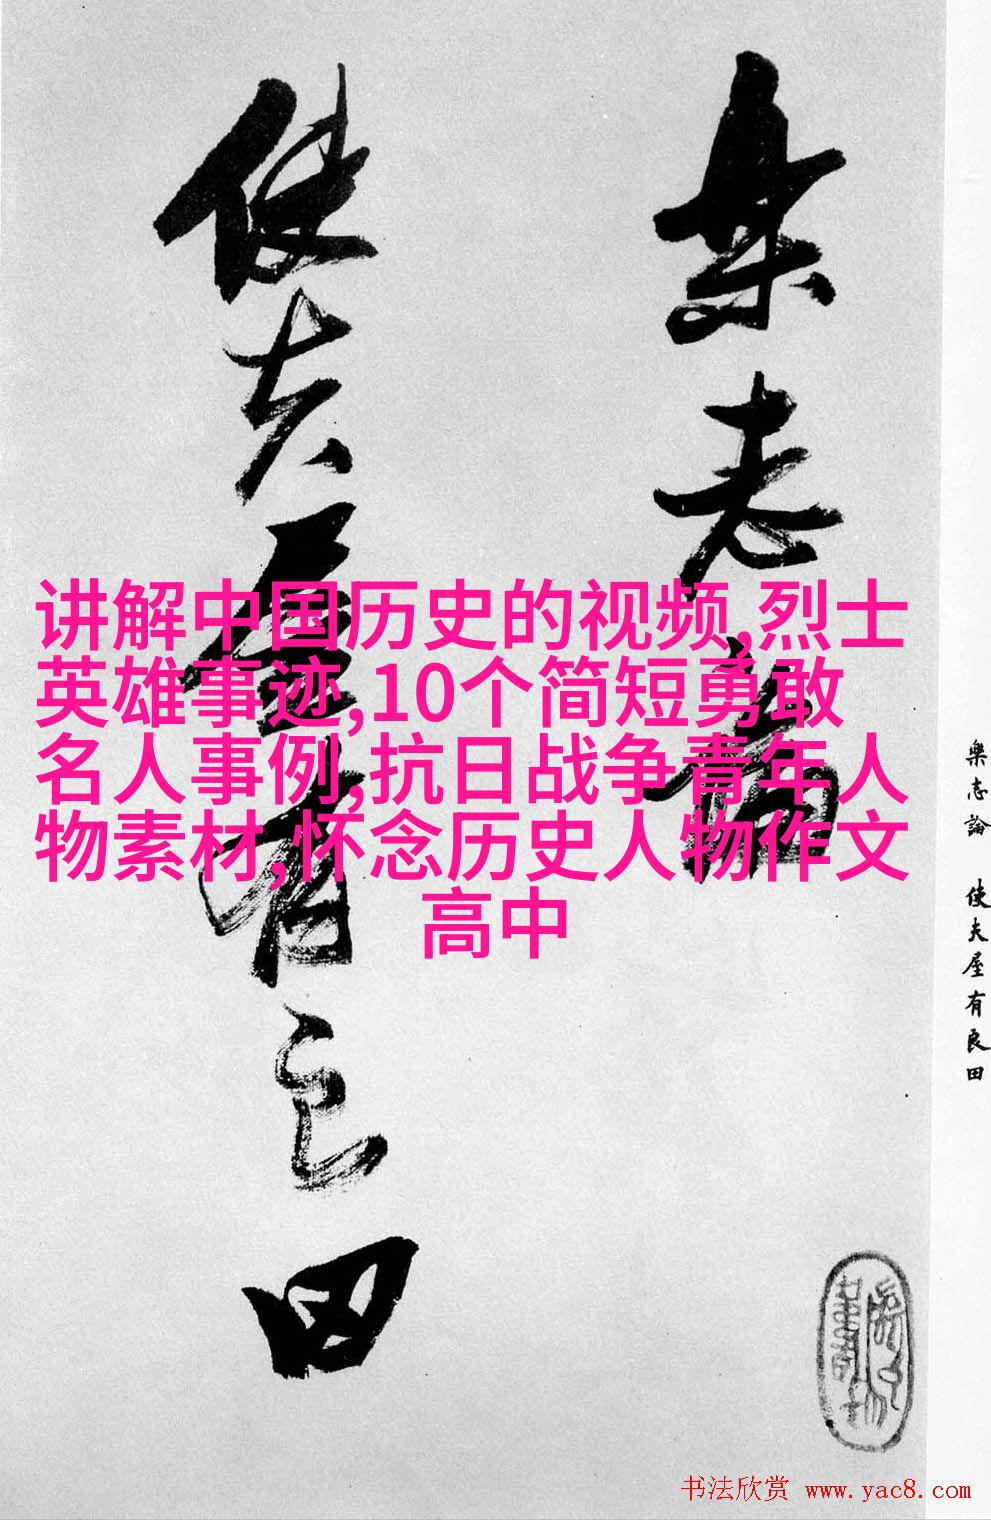 樂志論
使夫屋有良田
讲解中国历史的视频,烈士
英雄事迹,10个简短勇敢
名人事例,抗日战争青年人
物素材,怀念历史人物作文
高中
樂志論 使夫屋有良田
书法欣赏 www.yac8.com